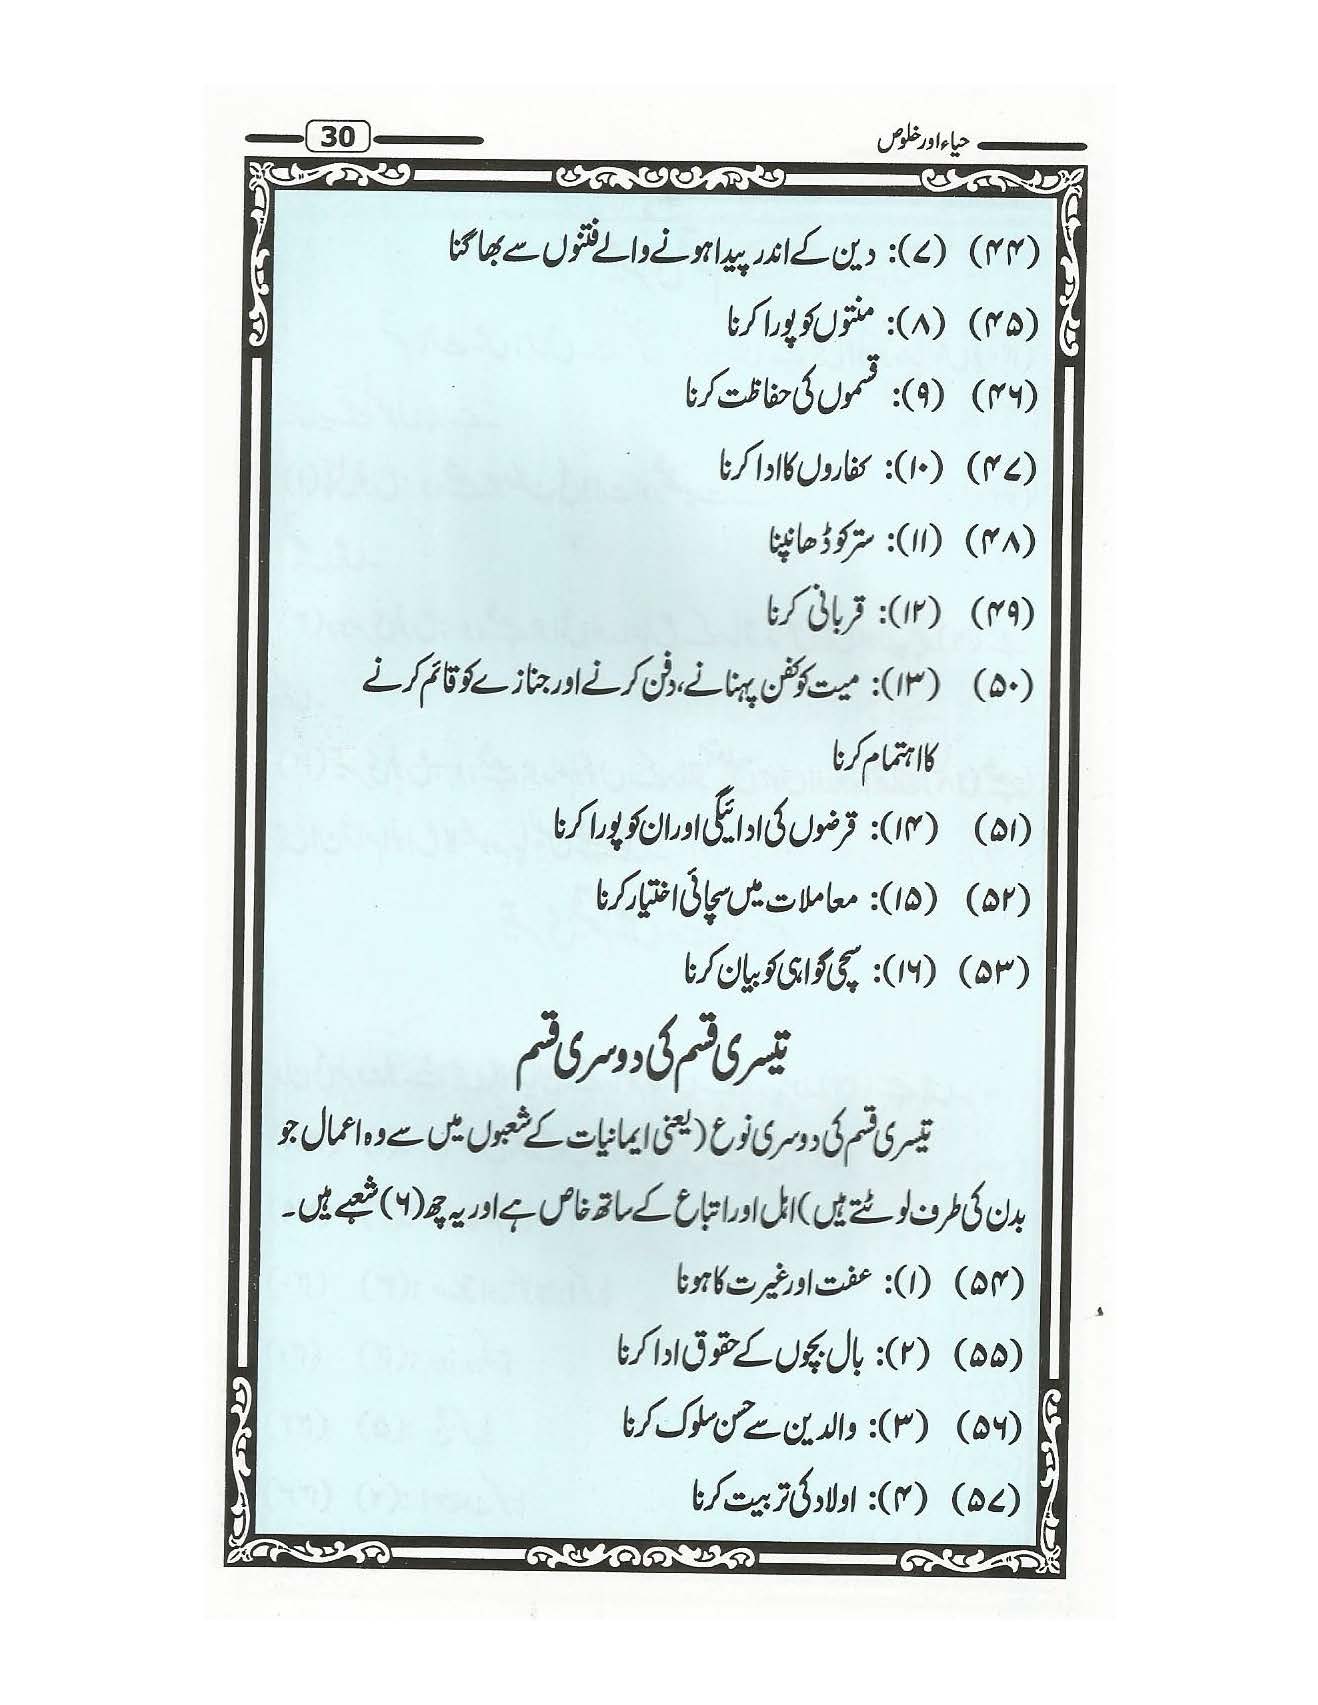 حیاء اور خلوص
30
(۴۴) (۷): دین کے اندر پیدا ہونے والے فتنوں سے بھاگنا
(۴۵) (۸): منتوں کو پورا کرنا
(۴۶) (۹): قسموں کی حفاظت کرنا
(۴۷) (۱۰): کفاروں کا ادا کرنا
(۴۸) (۱۱): ستر کو ڈھانپنا
(۴۹) (۱۲): قربانی کرنا
(۵۰) (۱۳): میت کو کفن پہنانے، دفن کرنے اور جنازے کو قائم کرنے
کا اہتمام کرنا
(۵۱) (۱۴): قرضوں کی ادائیگی اور ان کو پورا کرنا
(۵۲) (۱۵): معاملات میں سچائی اختیار کرنا
(۵۳) (۱۶): سچی گواہی کو بیان کرنا
تیسری قسم کی دوسری قسم
تیسری قسم کی دوسری نوع (یعنی ایمانیات کے شعبوں میں سے وہ اعمال جو
بدن کی طرف لوٹتے ہیں) اہل اور اتباع کے ساتھ خاص ہے اور یہ چھ (۶) شعبے ہیں۔
(۵۴) (۱): عفت اور غیرت کا ہونا
(۵۵) (۲): بال بچوں کے حقوق ادا کرنا
(۵۶) (۳): والدین سے حسن سلوک کرنا
(۵۷) (۴): اولاد کی تربیت کرنا